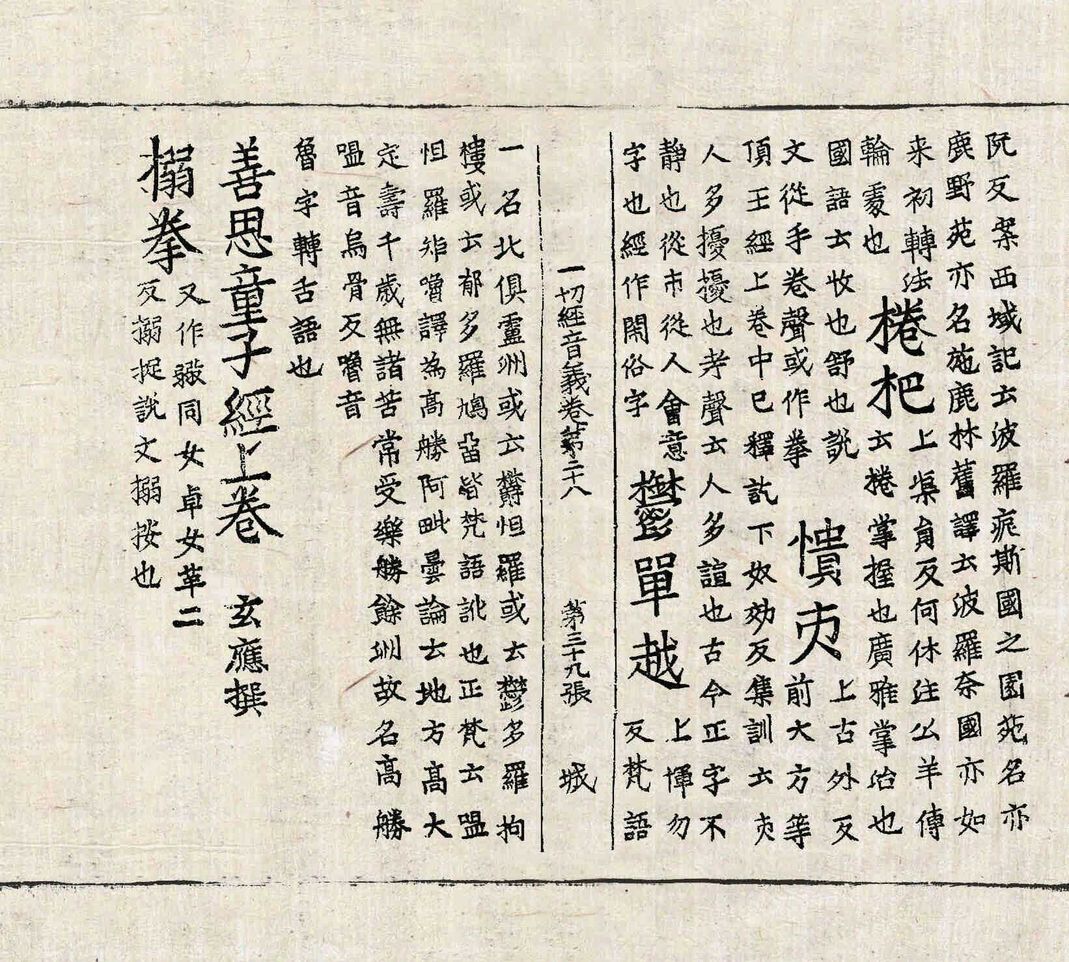 阮反案西域記云波羅痆斯國之園苑名亦
鹿野苑亦名施鹿林舊譯云波羅奈國亦如
来初轉法
輪處也
棬杷
上渠員反何休注公羊傳
云棬掌握也廣雅掌治也
國語云收也舒也説
文從手卷聲或作拳
憒夹
上古外反
前大方等
頂王經上卷中已釋訖下奴効反集訓云夹
人多擾擾也考聲云人多諠也古今正字不
靜也從市從人會意
字也經作閙俗字
欝單越
上惲勿
反梵語
一切經音義卷第二十八 第三十九張 城
一名北俱盧洲或云欝怛羅或云欝多羅拘
樓或云郁多羅鳩畱皆梵語訛也正梵云嗢
怛羅㘴嚕譯為高勝阿毗曇論云地方高大
定壽千歳無諸苦常受樂勝餘州故名高勝
嗢音烏骨反嚕音
魯字轉舌語也
善思童子經上卷 玄應撰
搦拳
又作𢶍同女卓女革二
反搦捉説文搦按也